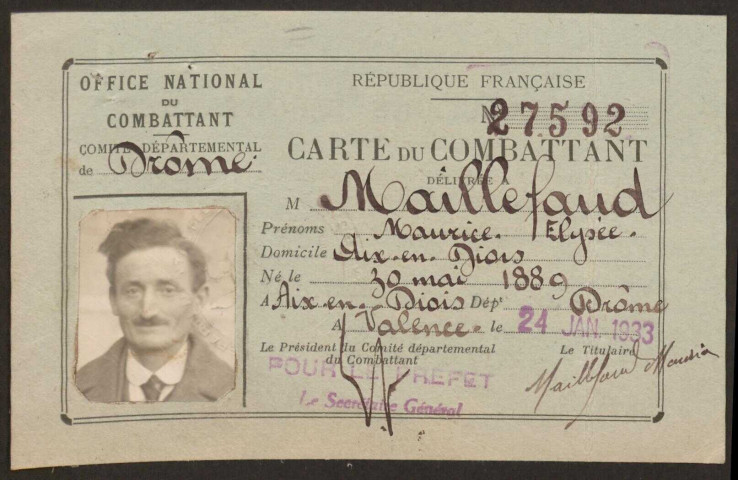 OFFICE NATIONAL
DU
COMBATTANT
COMITÉ DÉPARTEMENTAL
de Drôme.
RÉPUBLIQUE FRANÇAISE
N° 27592
CARTE DU COMBATTANT
DÉLIVRÉE A
M Maillefaud
Prénoms Maurice. Elysée.
Domicile Aix-en-Diois
Né le 30 mai 1889
A Aix-en-Diois Dépt Drôme
A Valence. le 24 JAN. 1933
Le Président du Comité départemental
du Combattant
Le Titulaire
POUR LE PREFET
Le Secrétaire Général
Maillefaud Maurice